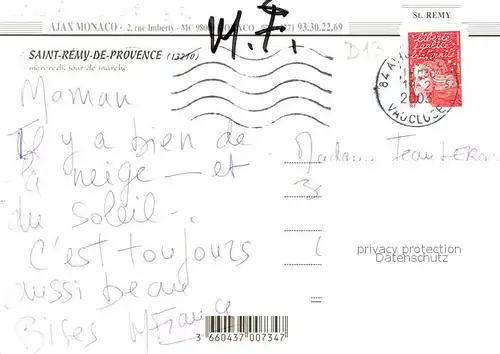 AJAX MONACO - 2, rue Imberty - MC 980 MONACO 93.30.22.69
St. REMY
M.F.
D13
SAINT-RÉMY-DE-PROVENCE (13210)
mercredi, jour de marché
84 A
2003
VAUCLUSE
Liberté
égalité
fraternité
Maman
Il y a bien de
la neige - et
du soleil -.
C'est toujours
aussi beau
Bises M France
Madame Jean
privacy protection
Datenschutz
3 660437 007347